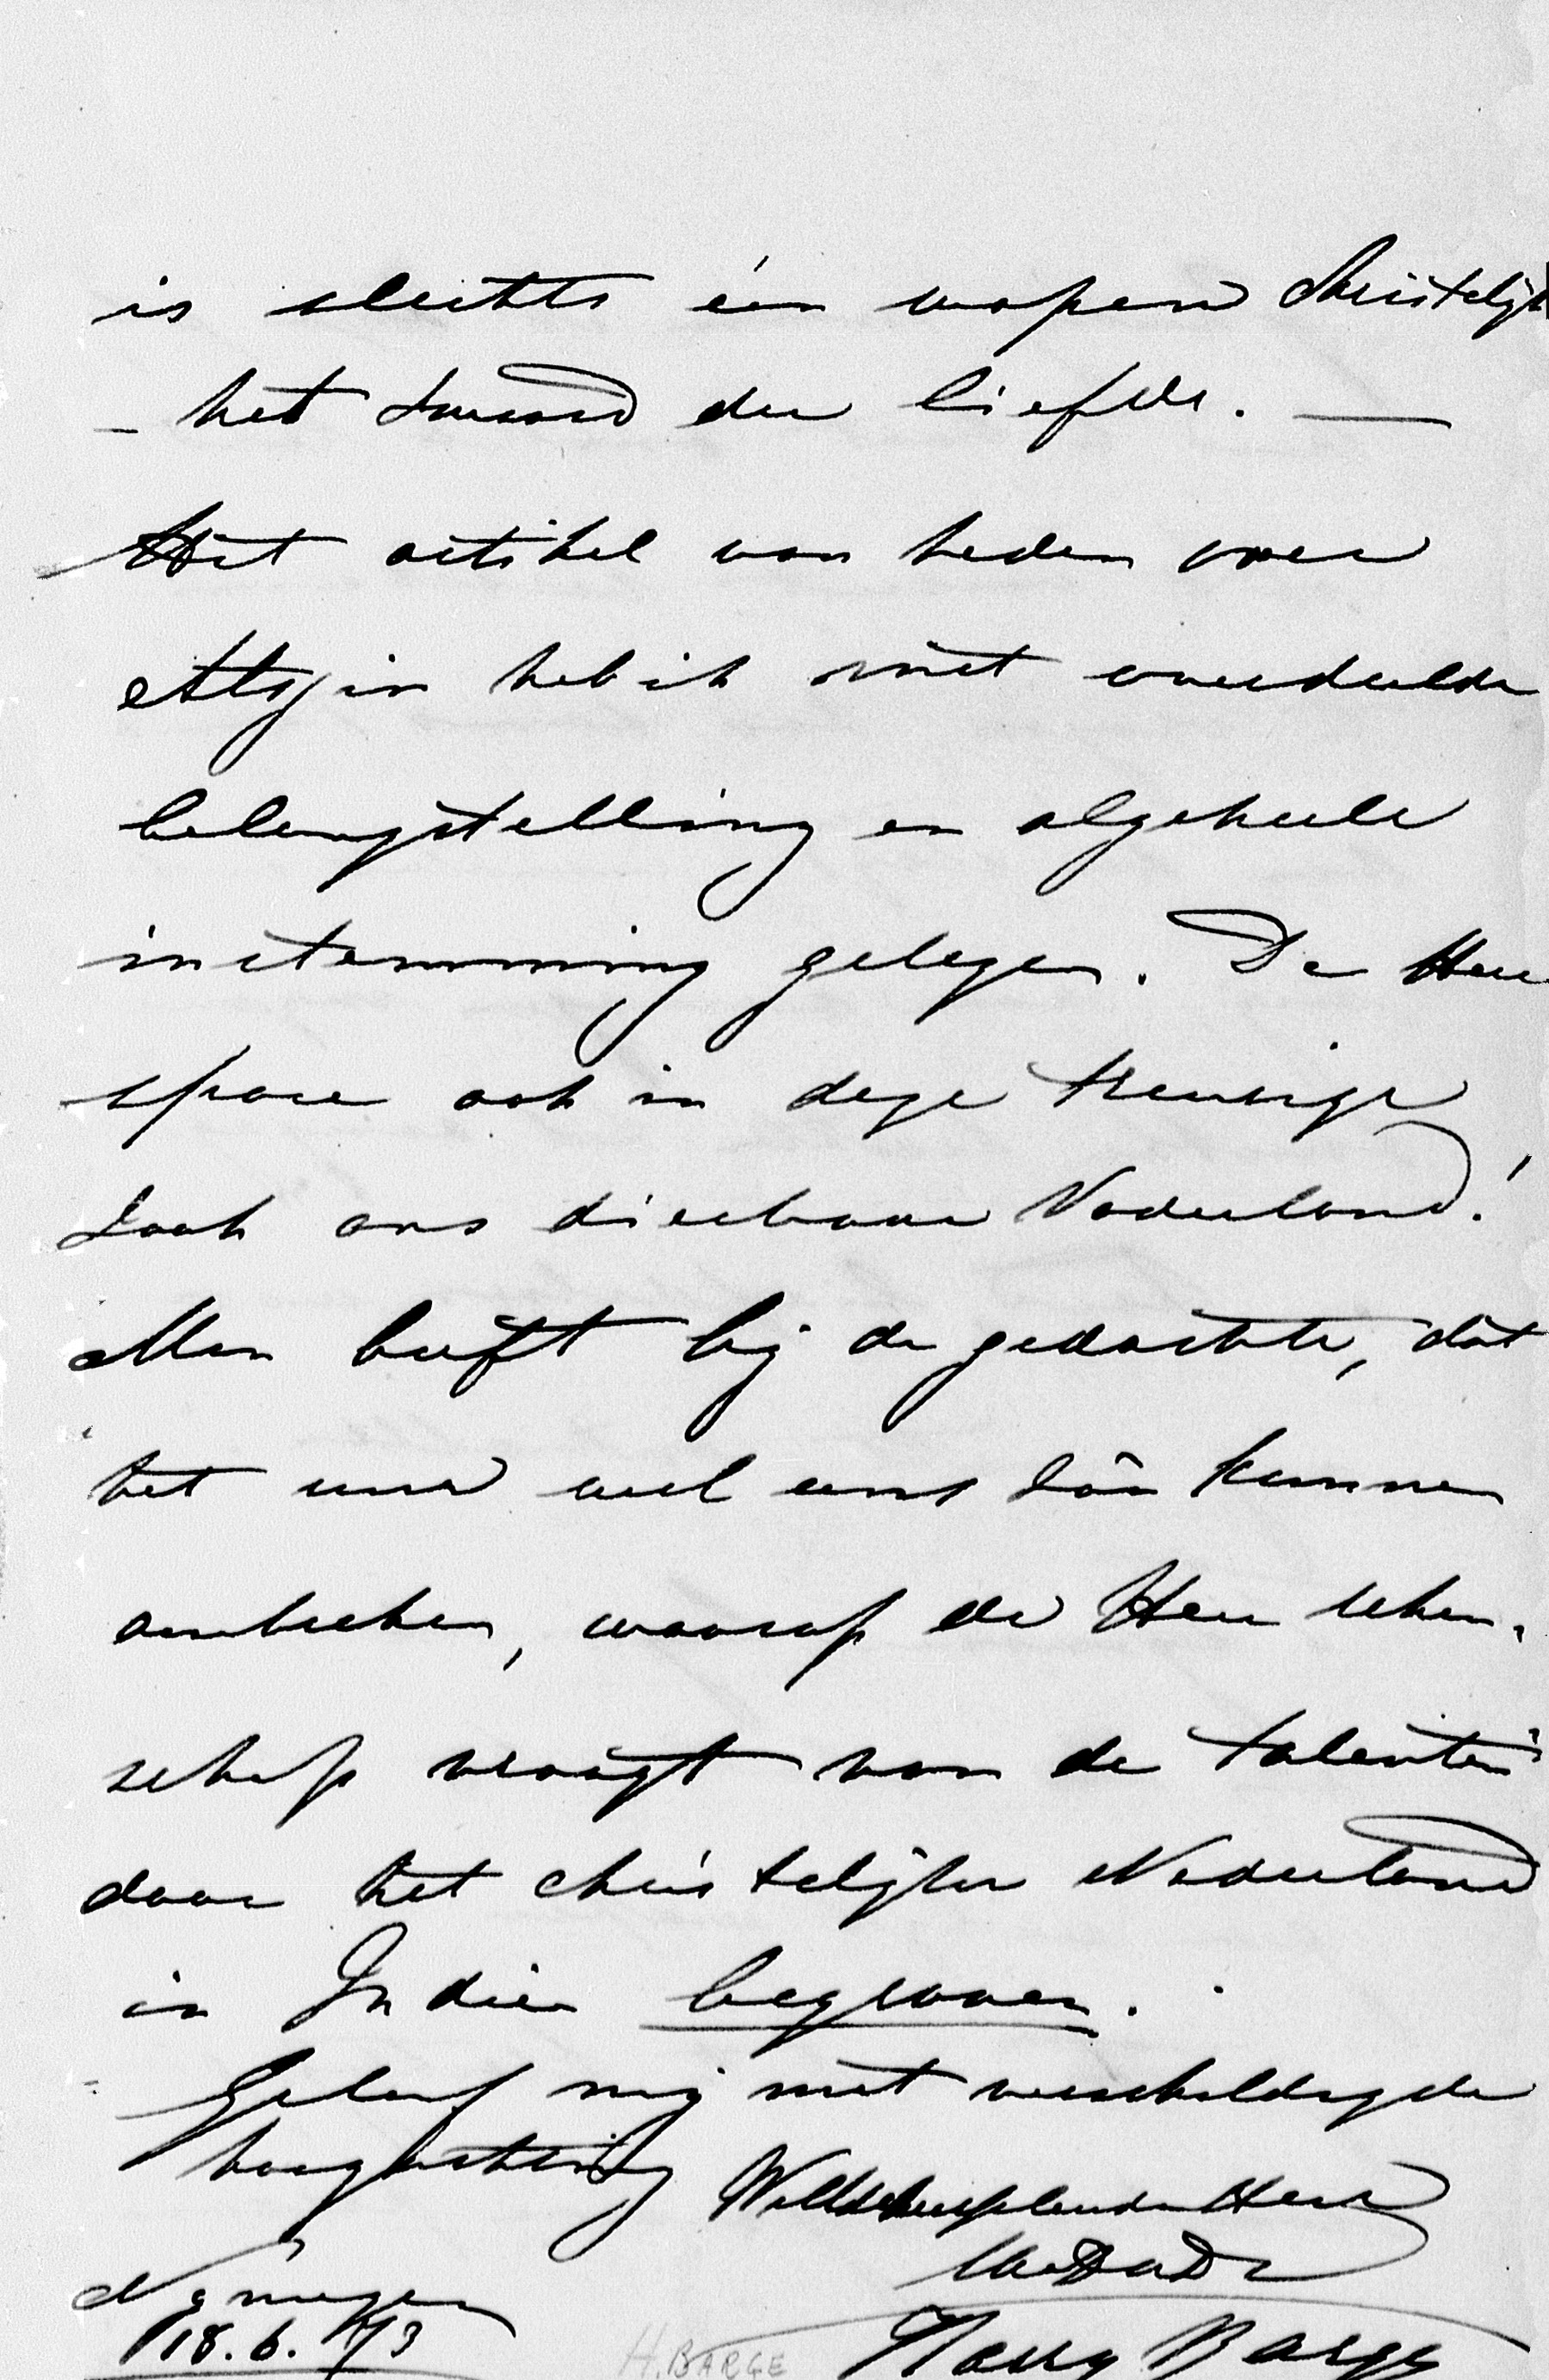 is slechts één wapen Christelijk
- het zwaard der liefde. —
Het artikel van heden over
Atsjin heb ik met onverdeelde
belangstelling en algeheele
instemming gelezen. De Heer
spare ook in deze treurige
zaak ons dierbaar Vaderland!
Men beeft bij de gedachte, dat
het uur wel eens kon kunnen
aanbreken, waarop de Heer reken-
schap vraagt van de talenten
door het christelijke Nederland
in Indie begraven.
Geloof mij met verschuldigde
hoogachting WelEdelgeboren Heer
UwEdDr
Nijmegen
18.6.73
H. BARGE
Harry Barge